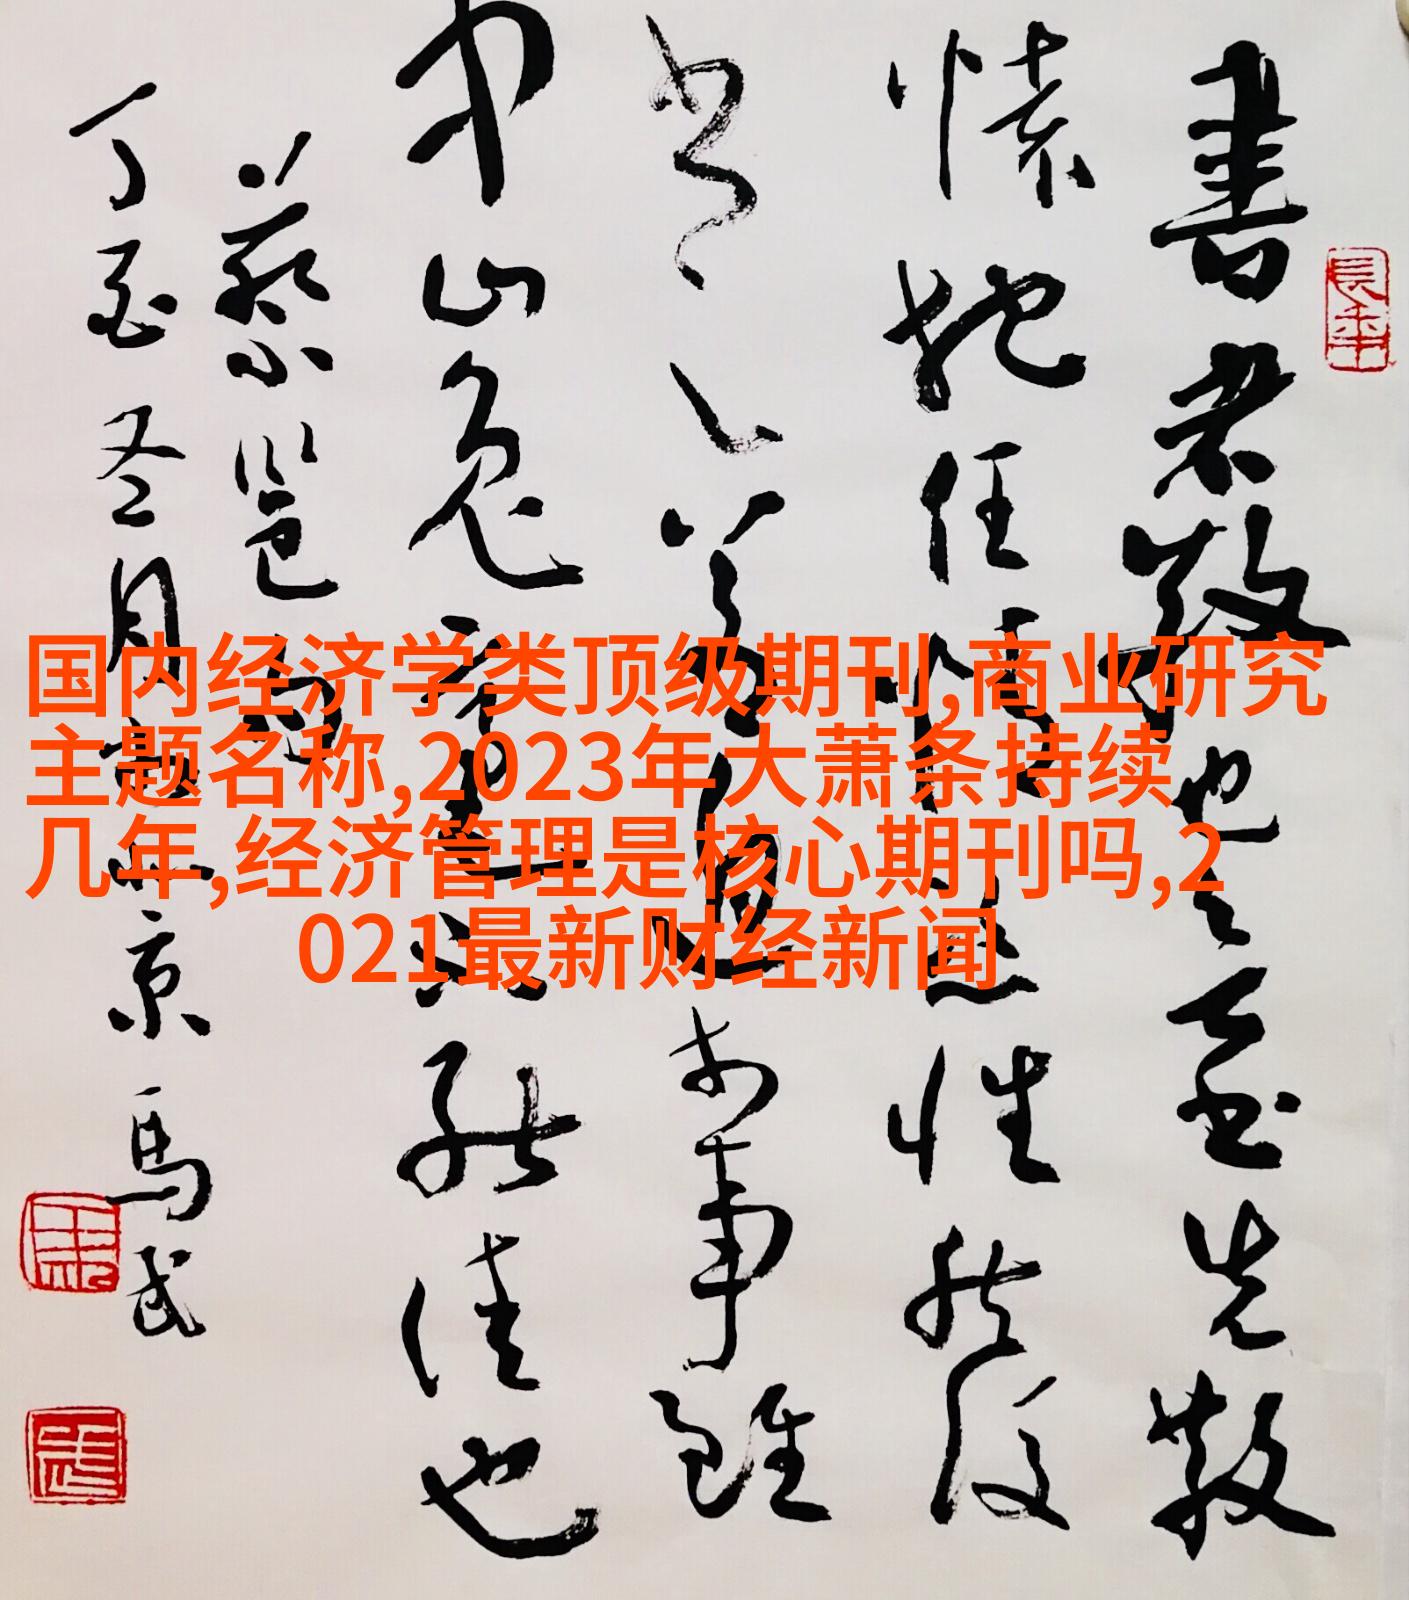 国内经济学类顶级期刊,商业研究
主题名称,2023年大萧条持续
几年,经济管理是核心期刊吗,2
021最新财经新闻
書者散也欲書先散
懷抱任情恣性然後
書之若迫於事雖
中山兔毫不能佳也
蔡邕句
丁酉冬月京馬武